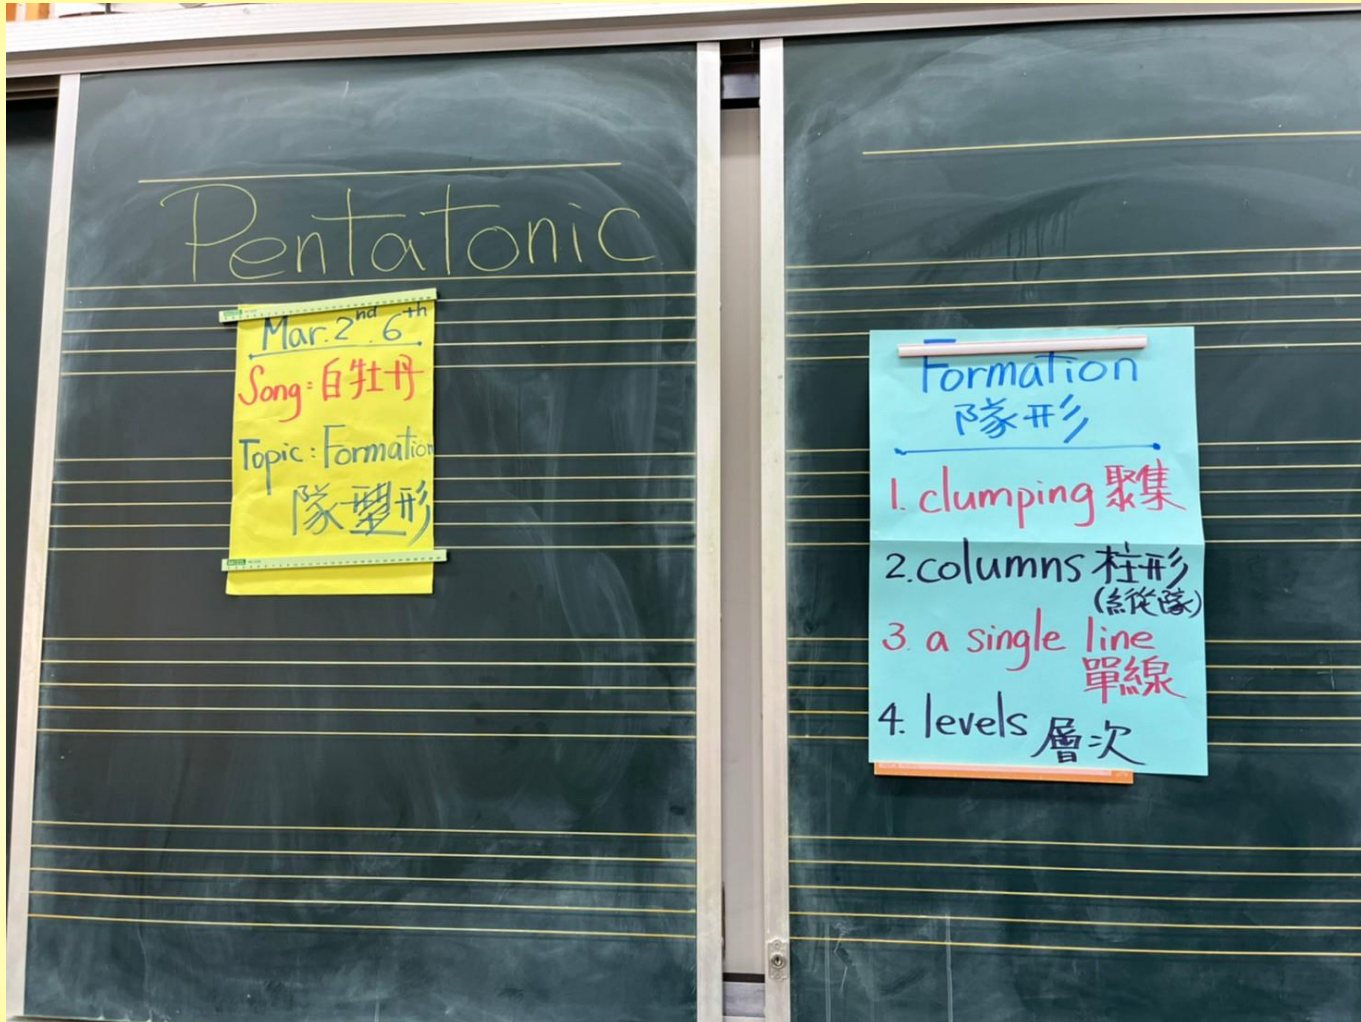 Pentatonic
Mar. 2nd. 6th
Song: 白牡丹
Topic: Formation
隊形
Formation
隊形
1. clumping 聚集
2. columns 柱形
(縱隊)
3. a single line
單線
4. levels 層次